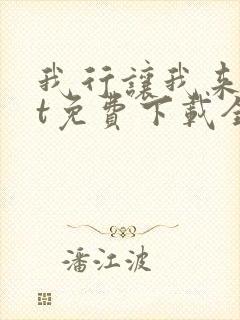 我行讓我来
t免費下載全
潘江波